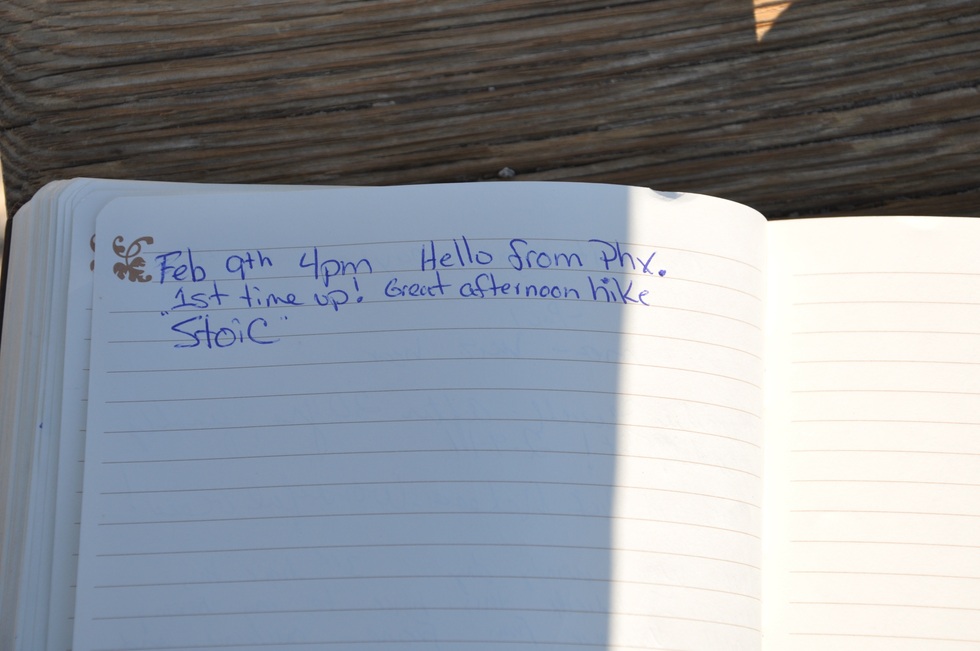 Feb 9th 4pm Hello from Phx.
1st time up! Great afternoon hike
"StoiC"